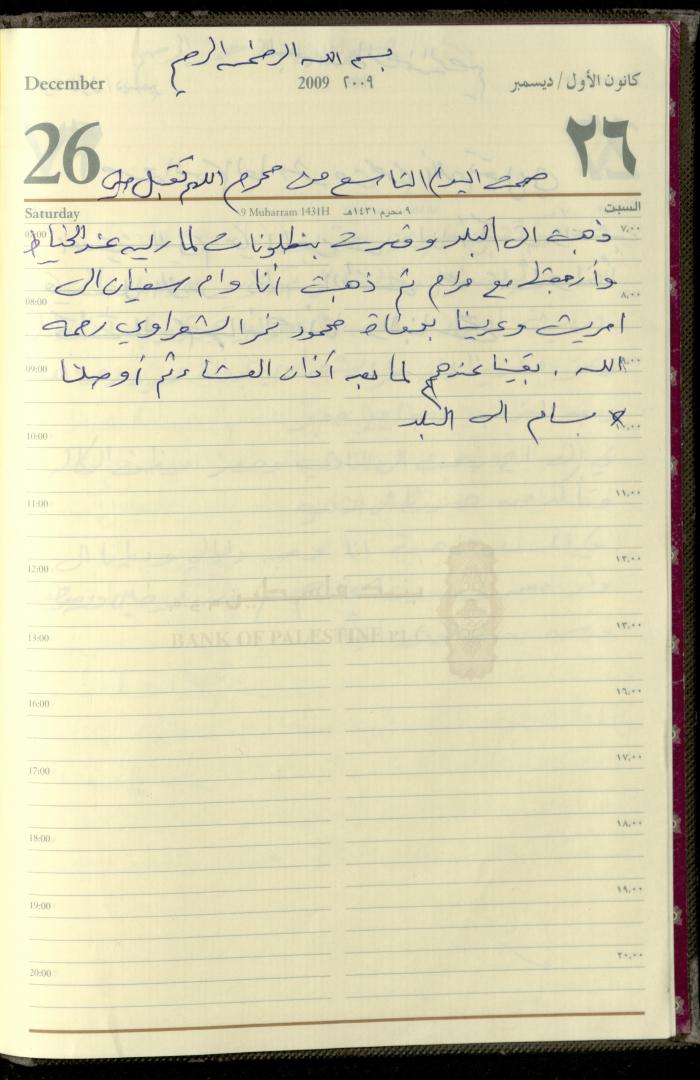 بسم الله الرحمن الرحيم
December 2009 ٢٠٠٩ كانون الأول / ديسمبر
26 ٢٦
صمت اليوم التاسع من محرم اللهم تقبل
Saturday 9 Muharram 1431H ٩ محرم ١٤٣١هـ السبت
ذهبت الى البلد وقصرت بنطلونات لمارليه عند الخياط
وأرجعتها مع مرام ثم ذهبت أنا وام سفيان الى
امريش وعزينا بوفاة محمود نمر الشعراوي رحمه
الله . بقينا عندهم لما بعد آذان العشاء ثم أوصلنا
بسام الى البلد
07:00 ٧,٠٠
08:00 ٨,٠٠
09:00 ٩,٠٠
10:00 ١٠,٠٠
11:00 ١١,٠٠
12:00 ١٢,٠٠
13:00 ١٣,٠٠
BANK OF PALESTINE P.L.C.
16:00 ١٦,٠٠
17:00 ١٧,٠٠
18:00 ١٨,٠٠
19:00 ١٩,٠٠
20:00 ٢٠,٠٠